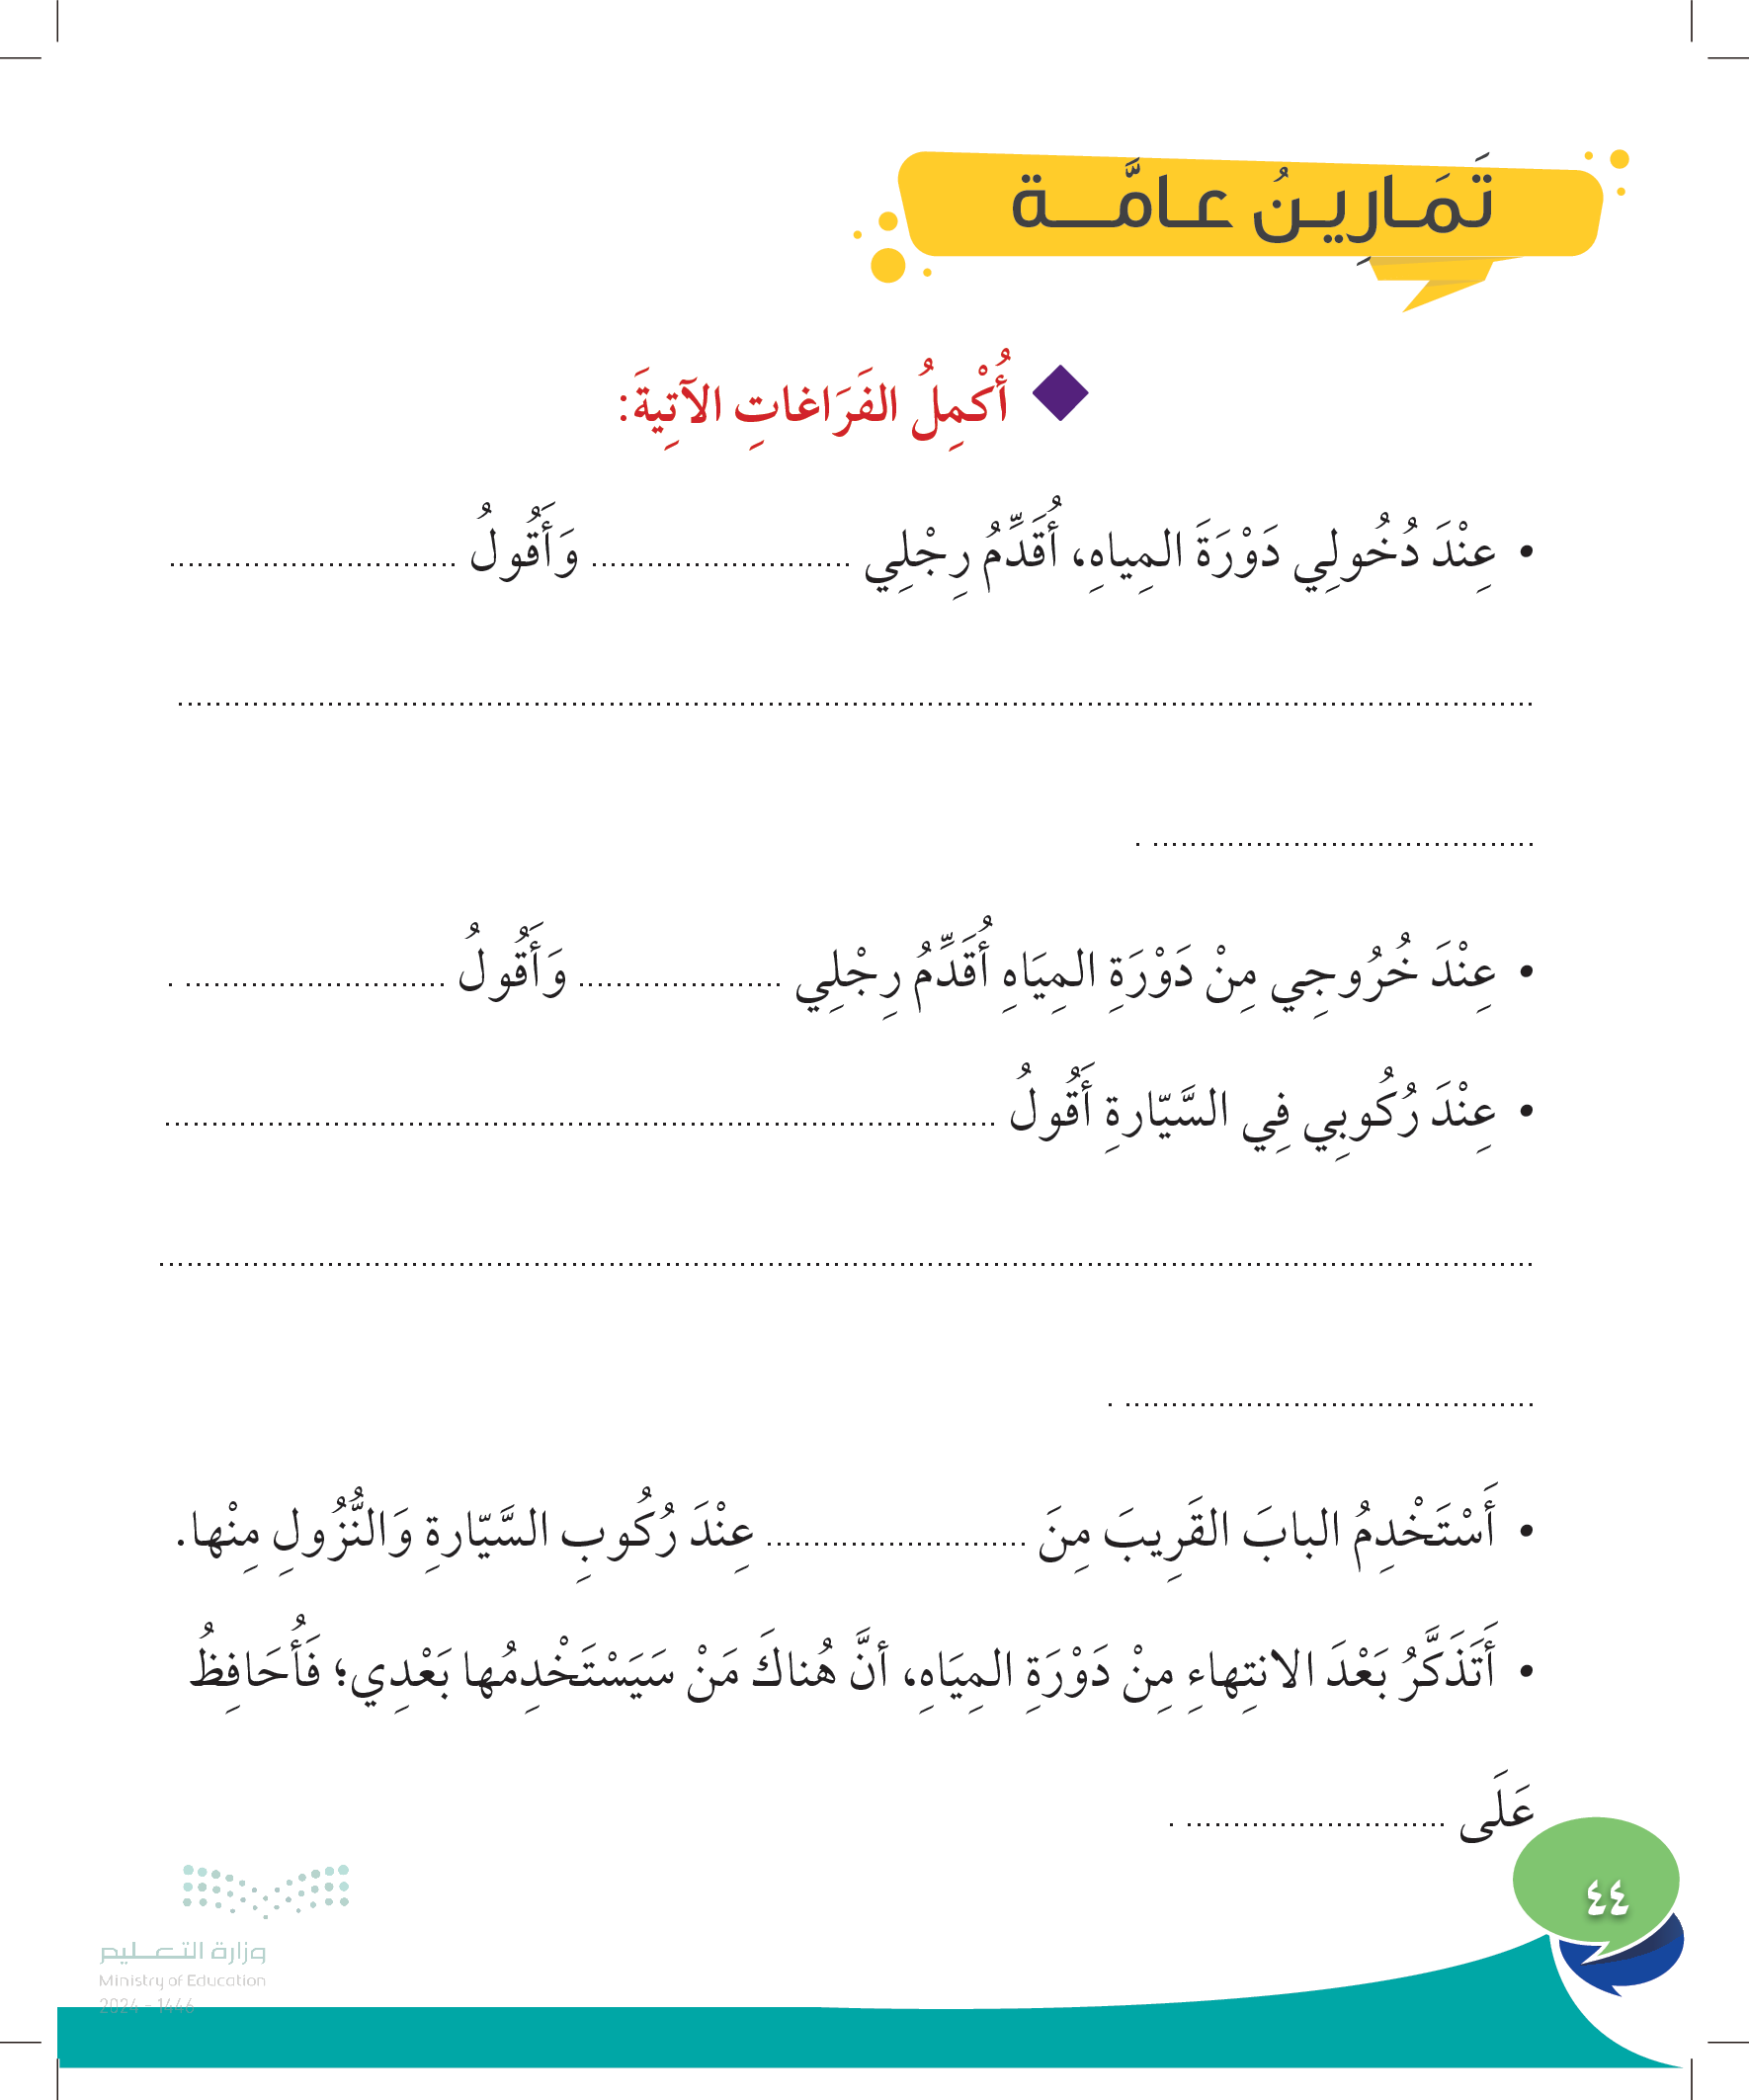 تَمَارِينُ عامَّة
أُكْمِلُ الفَرَاغاتِ الآتِيةَ:
• عِنْدَ دُخُولِي دَوْرَةَ المِياهِ، أُقَدِّمُ رِجْلِي .......................... وَأَقُولُ ..........................
..........................................................................................
.......................... .
• عِنْدَ خُرُوجِي مِنْ دَوْرَةِ المِيَاهِ أُقَدِّمُ رِجْلِي .......................... وَأَقُولُ .......................... .
• عِنْدَ رُكُوبِي فِي السَّيّارةِ أَقُولُ ..........................................................
..........................................................................................
.......................... .
• أَسْتَخْدِمُ البابَ القَرِيبَ مِنَ .......................... عِنْدَ رُكُوبِ السَّيّارةِ وَالنُّزُولِ مِنْها.
• أَتَذَكَّرُ بَعْدَ الانتِهاءِ مِنْ دَوْرَةِ المِيَاهِ، أنَّ هُناكَ مَنْ سَيَسْتَخْدِمُها بَعْدِي؛ فَأُحَافِظُ
عَلَى .......................... .
٤٤
وزارة التعليم
Ministry of Education
2024 - 1446